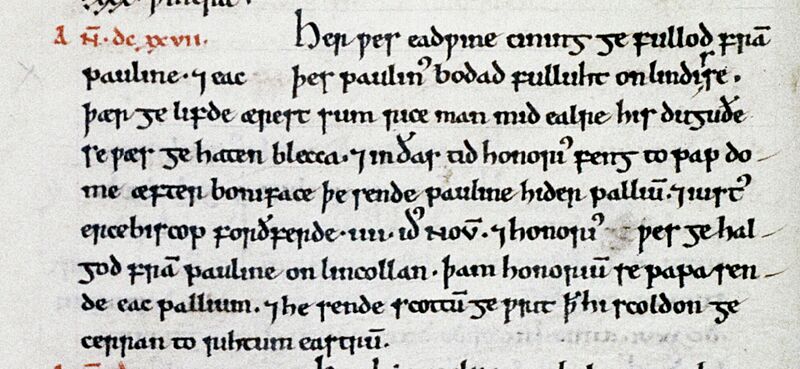 AN̄. dcxxvii. Her ƿes eadƿine cining ge fullod frā
pauline. ⁊ eac þes paulinꝰ bodad fulluht on lindisse.
þær ge lifde ærest sum rice man mid ealre his duguðe
se ƿæs ge haten blecca. ⁊ in ðas tid honoriꝰ feng to pap do
me æfter boniface þe sende pauline hider palliū. ⁊ iustꝰ
ercebiscop forðferde. iiii. idꝰ nov̄. ⁊ honoriꝰ ƿes ge hal
god frā pauline on lincollan. þam honoriū se papa sen
de eac pallium. ⁊ he sende scottū ge ƿrit ꝥ hi scoldon ge
cerran to rihtum eastrū.